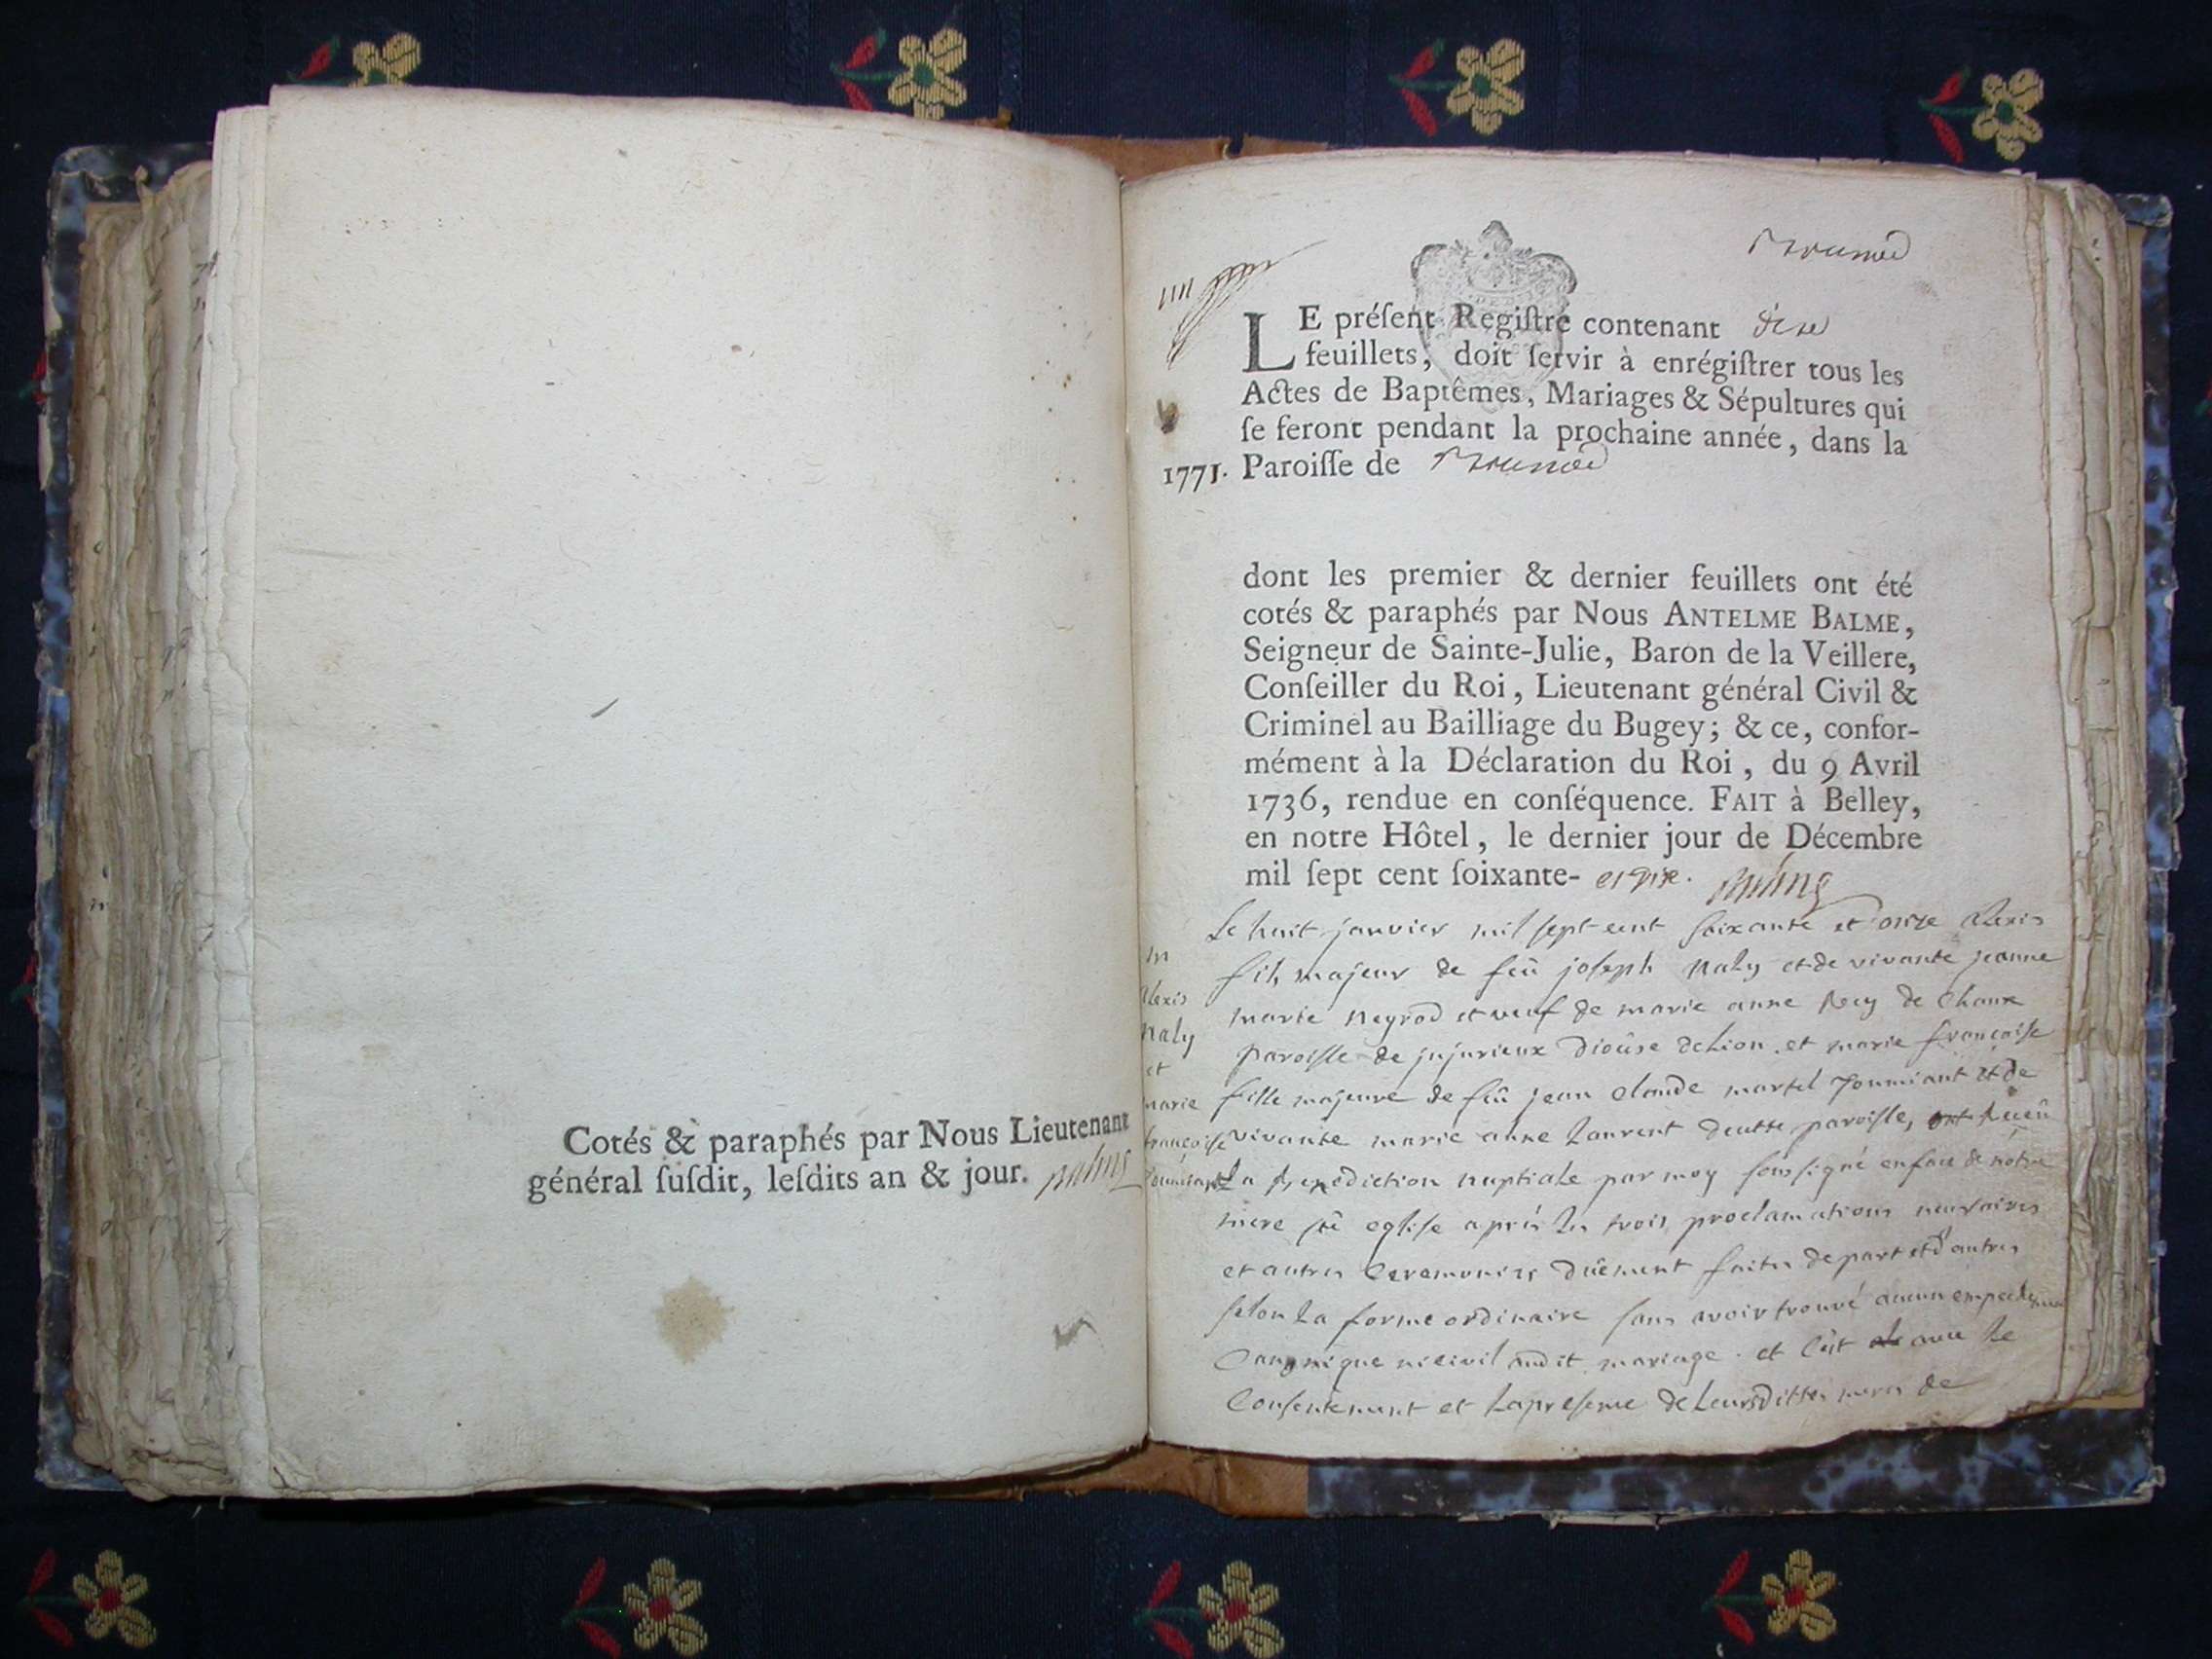 Cotés & paraphés par Nous Lieutenant
général ſuſdit, leſdits an & jour.
LE préſent Regiſtre contenant
feuillets, doit ſervir à enrégiſtrer tous les
Actes de Baptêmes, Mariages & Sépultures qui
ſe feront pendant la prochaine année, dans la
1771. Paroiſſe de
dont les premier & dernier feuillets ont été
cotés & paraphés par Nous ANTELME BALME,
Seigneur de Sainte-Julie, Baron de la Veillere,
Conſeiller du Roi, Lieutenant général Civil &
Criminel au Bailliage du Bugey; & ce, confor-
mément à la Déclaration du Roi, du 9 Avril
1736, rendue en conſéquence. FAIT à Belley,
en notre Hôtel, le dernier jour de Décembre
mil ſept cent ſoixante- et dix.
m
alexis
naly
et
marie
françoiſe
Le huit janvier mil ſept cent ſoixante et onze alexis
fils majeur de feû joſeph naly et de vivante jeanne
marie neyrod et veuf de marie anne de chaux
paroiſſe de jujurieux dioûse de Lion. et marie françoiſe
fille majeure de feû jean claude martel et de
vivante marie anne Laurent deutte paroiſſe, ont Reçeû
La Benediction nuptiale par moy ſousſigné en face de notre
mere ste egliſe aprés les trois proclamations neceſſaires
et autres ceremonies dûement faites de part et d'autres
ſelon La forme ordinaire ſans avoir trouvé aucun empechement
canonique ni civil audit mariage. et c'est avec Le
conſentement et La preſence de Leursdittes meres de